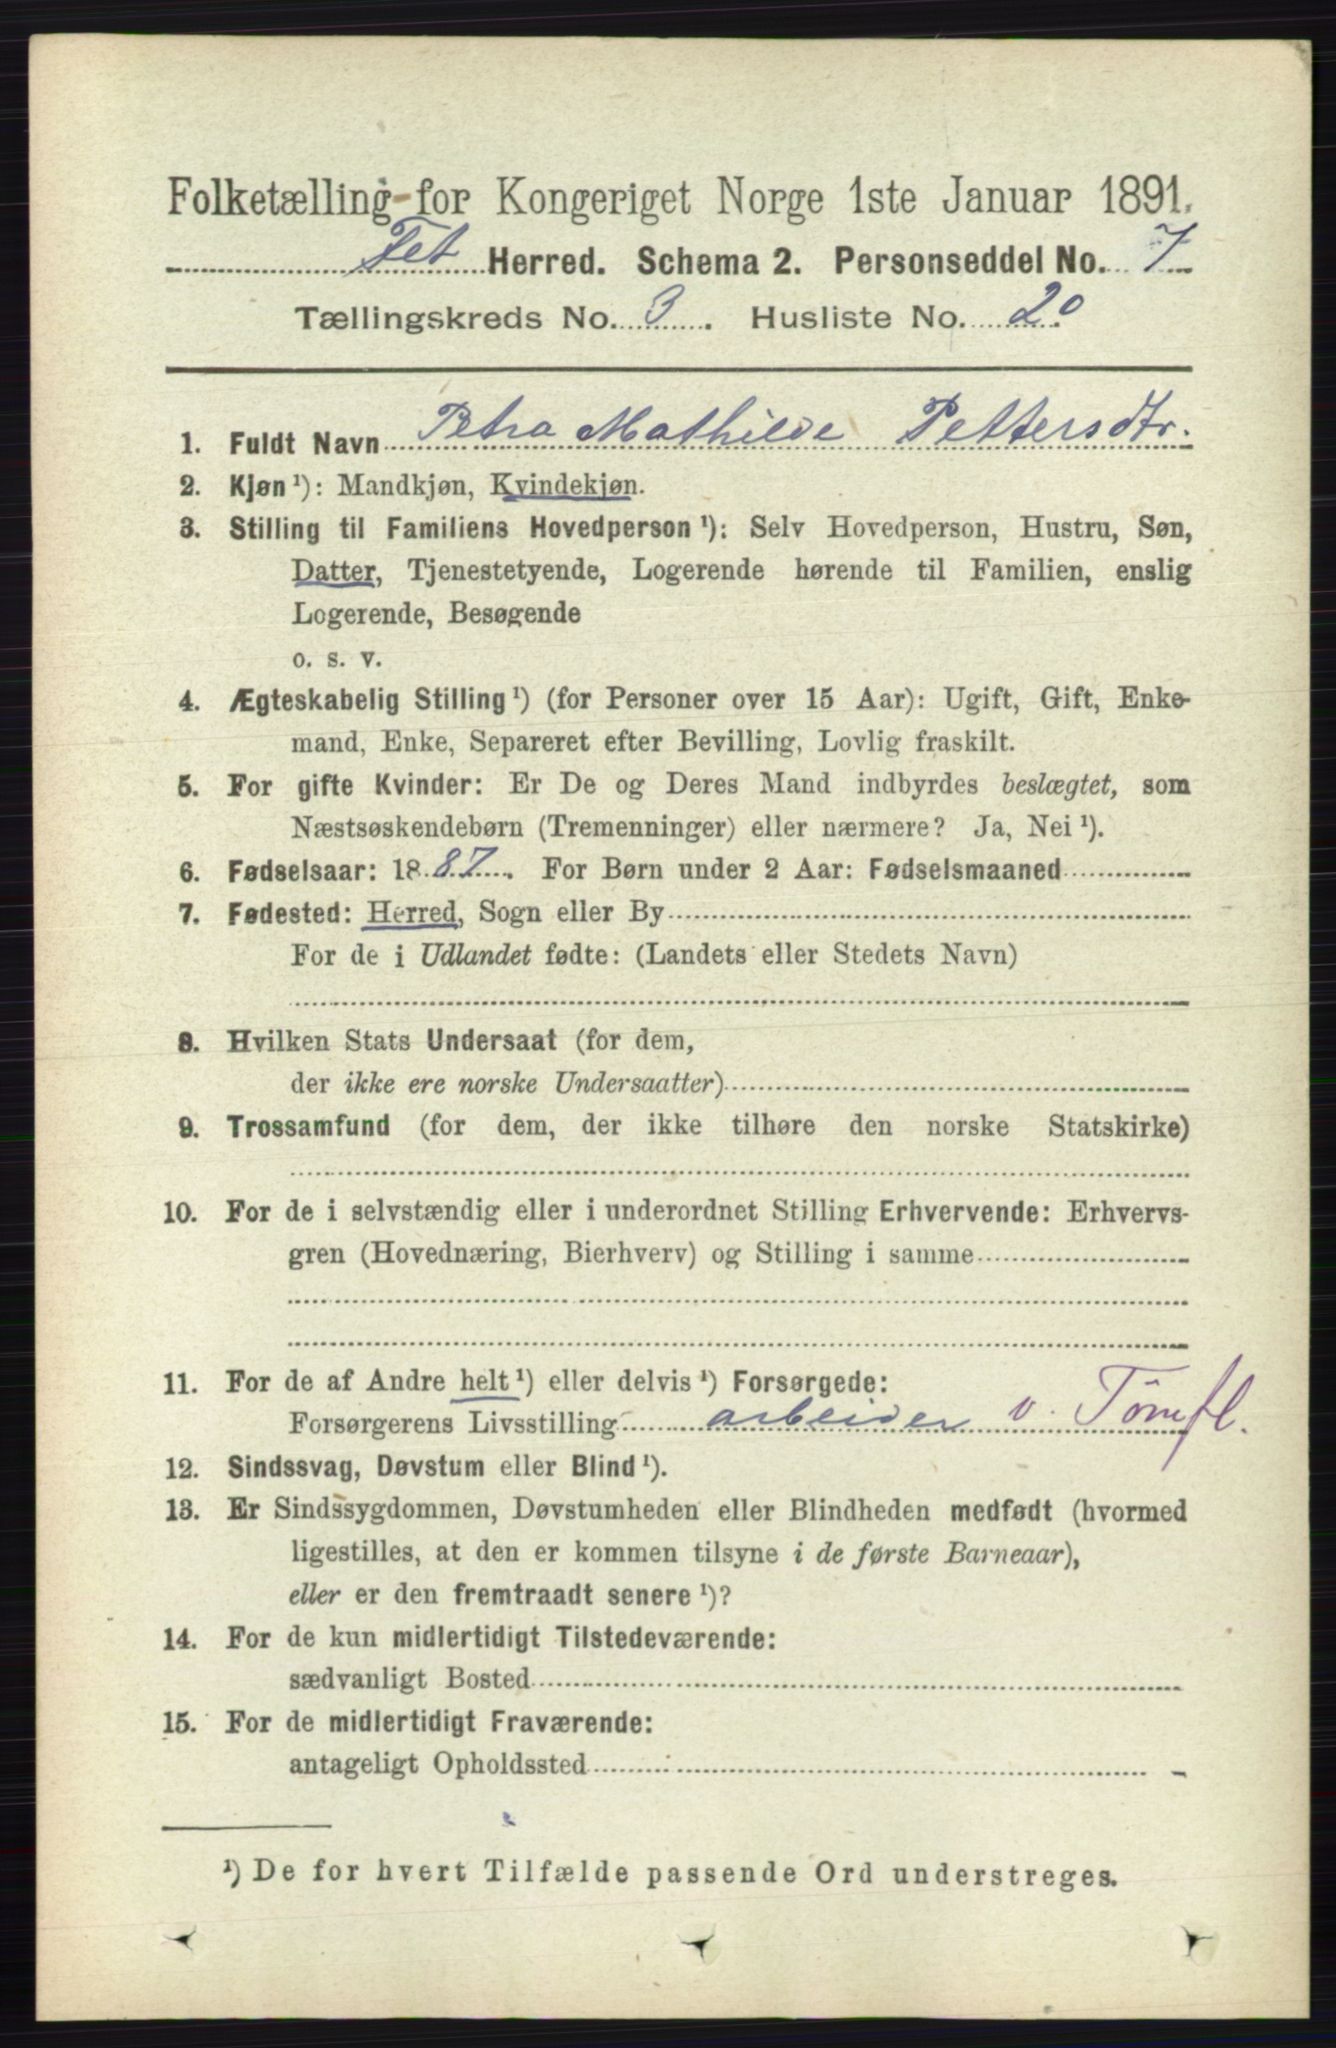 Folketælling for Kongeriget Norge 1ste Januar 1891.
Fet Herred. Schema 2. Personseddel No. 7
Tællingskreds No. 3. Husliste No. 20.
1. Fuldt Navn Petra Mathilde Pettersdtr.
2. Kjøn ¹): Mandkjøn, Kvindekjøn.
3. Stilling til Familiens Hovedperson ¹): Selv Hovedperson, Hustru, Søn,
Datter, Tjenestetyende, Logerende hørende til Familien, enslig
Logerende, Besøgende
o. s. v.
4. Ægteskabelig Stilling ¹) (for Personer over 15 Aar): Ugift, Gift, Enke-
mand, Enke, Separeret efter Bevilling, Lovlig fraskilt.
5. For gifte Kvinder: Er De og Deres Mand indbyrdes beslægtet, som
Næstsøskendebørn (Tremenninger) eller nærmere? Ja, Nei ¹).
6. Fødselsaar: 1887. For Børn under 2 Aar: Fødselsmaaned
7. Fødested: Herred, Sogn eller By
For de i Udlandet fødte: (Landets eller Stedets Navn)
8. Hvilken Stats Undersaat (for dem,
der ikke ere norske Undersaatter)
9. Trossamfund (for dem, der ikke tilhøre den norske Statskirke)
10. For de i selvstændig eller i underordnet Stilling Erhvervende: Erhvervs-
gren (Hovednæring, Bierhverv) og Stilling i samme
11. For de af Andre helt ¹) eller delvis ¹) Forsørgede:
Forsørgerens Livsstilling arbeider v. Tømfl.
12. Sindssvag, Døvstum eller Blind ¹).
13. Er Sindssygdommen, Døvstumheden eller Blindheden medfødt (hvormed
ligestilles, at den er kommen tilsyne i de første Barneaar),
eller er den fremtraadt senere ¹)?
14. For de kun midlertidigt Tilstedeværende:
sædvanligt Bosted
15. For de midlertidigt Fraværende:
antageligt Opholdssted
¹) De for hvert Tilfælde passende Ord understreges.